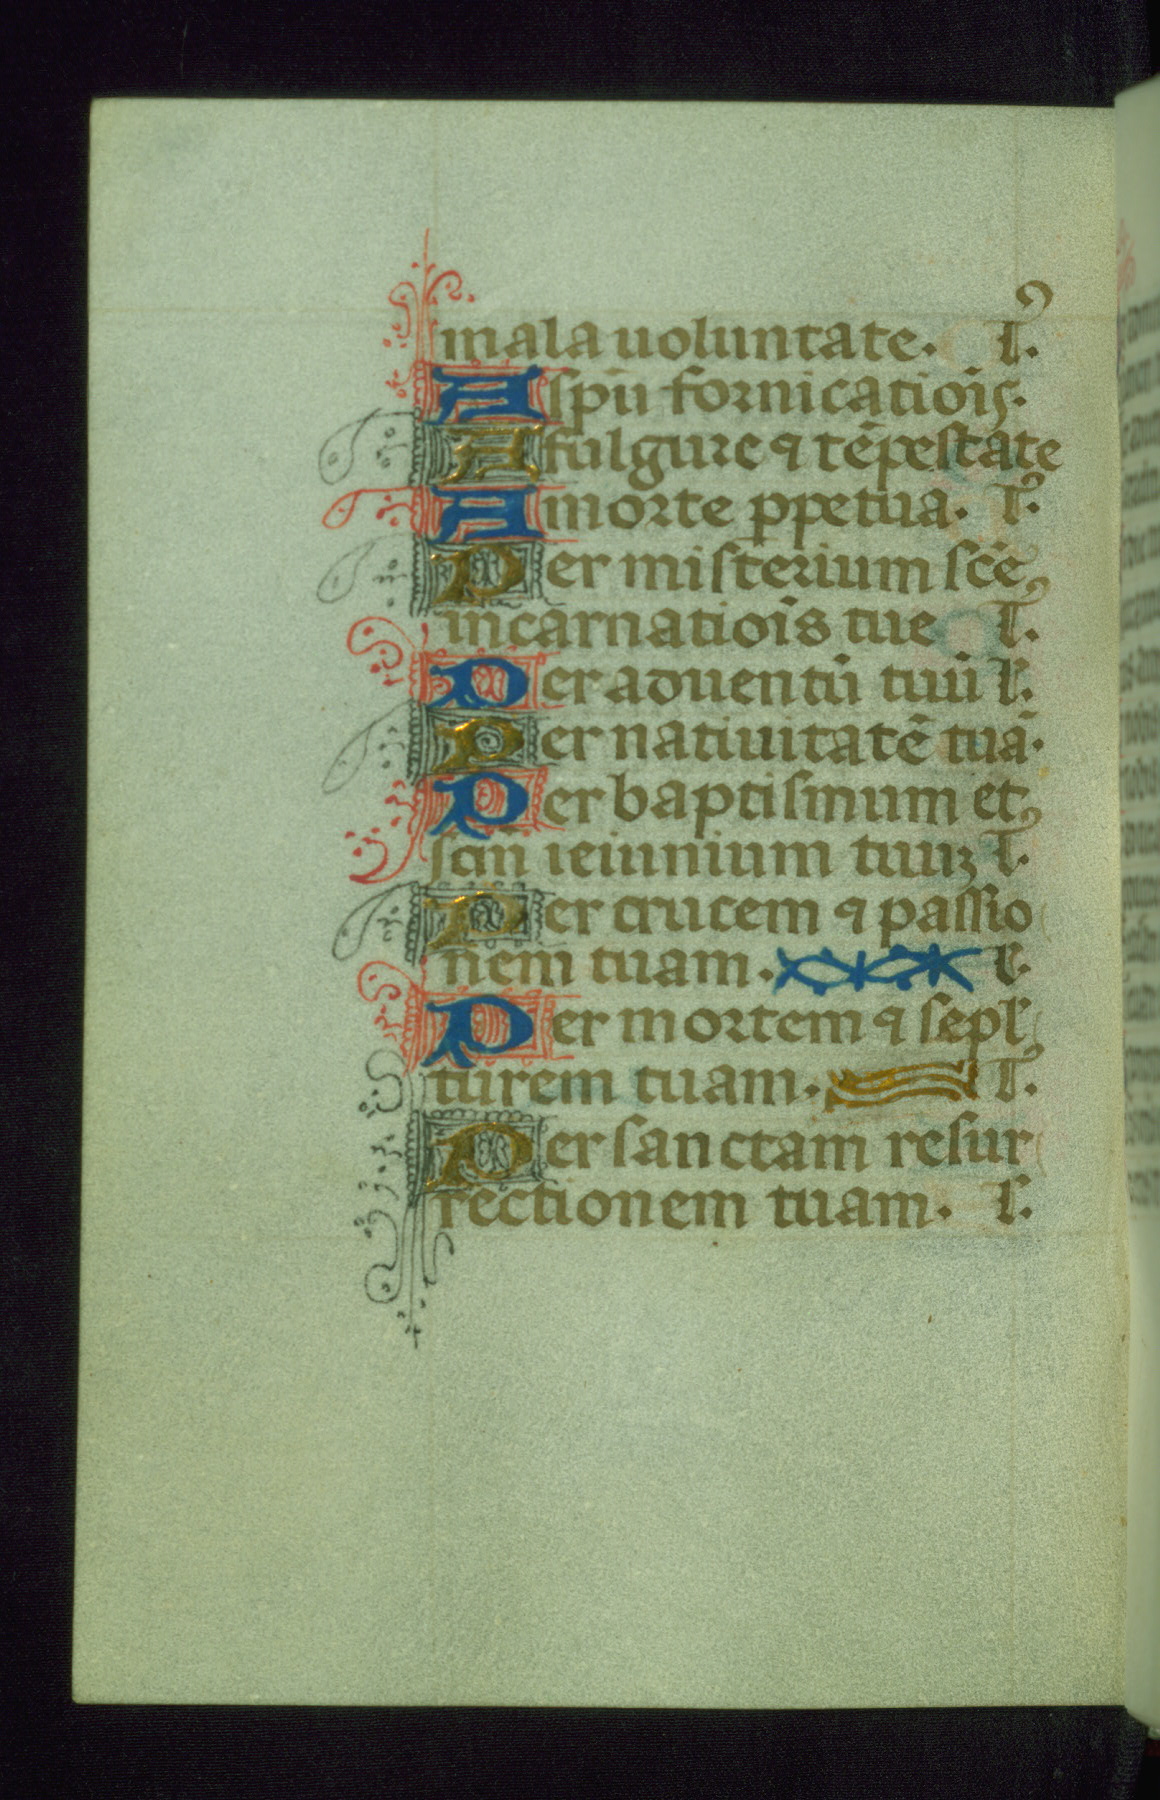 mala uoluntate. l.
A spũ fornicatiōis.
A fulgure ⁊ tẽpestate
A morte ꝑpetua. l.
Per misterium scē
incarnatiōis tue l.
Per aduentũ tuũ l.
Per natiuitatẽ tuã.
Per baptismum et
scm̃ ieiunium tuuꝫ l.
Per crucem ⁊ passio
nem tuam. l.
Per mortem ⁊ sepl̃
turem tuam. l.
Per sanctam resur
rectionem tuam. l.